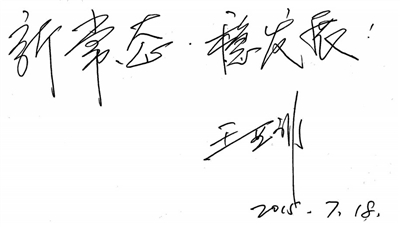 新常态·稳发展！
2015.7.18.